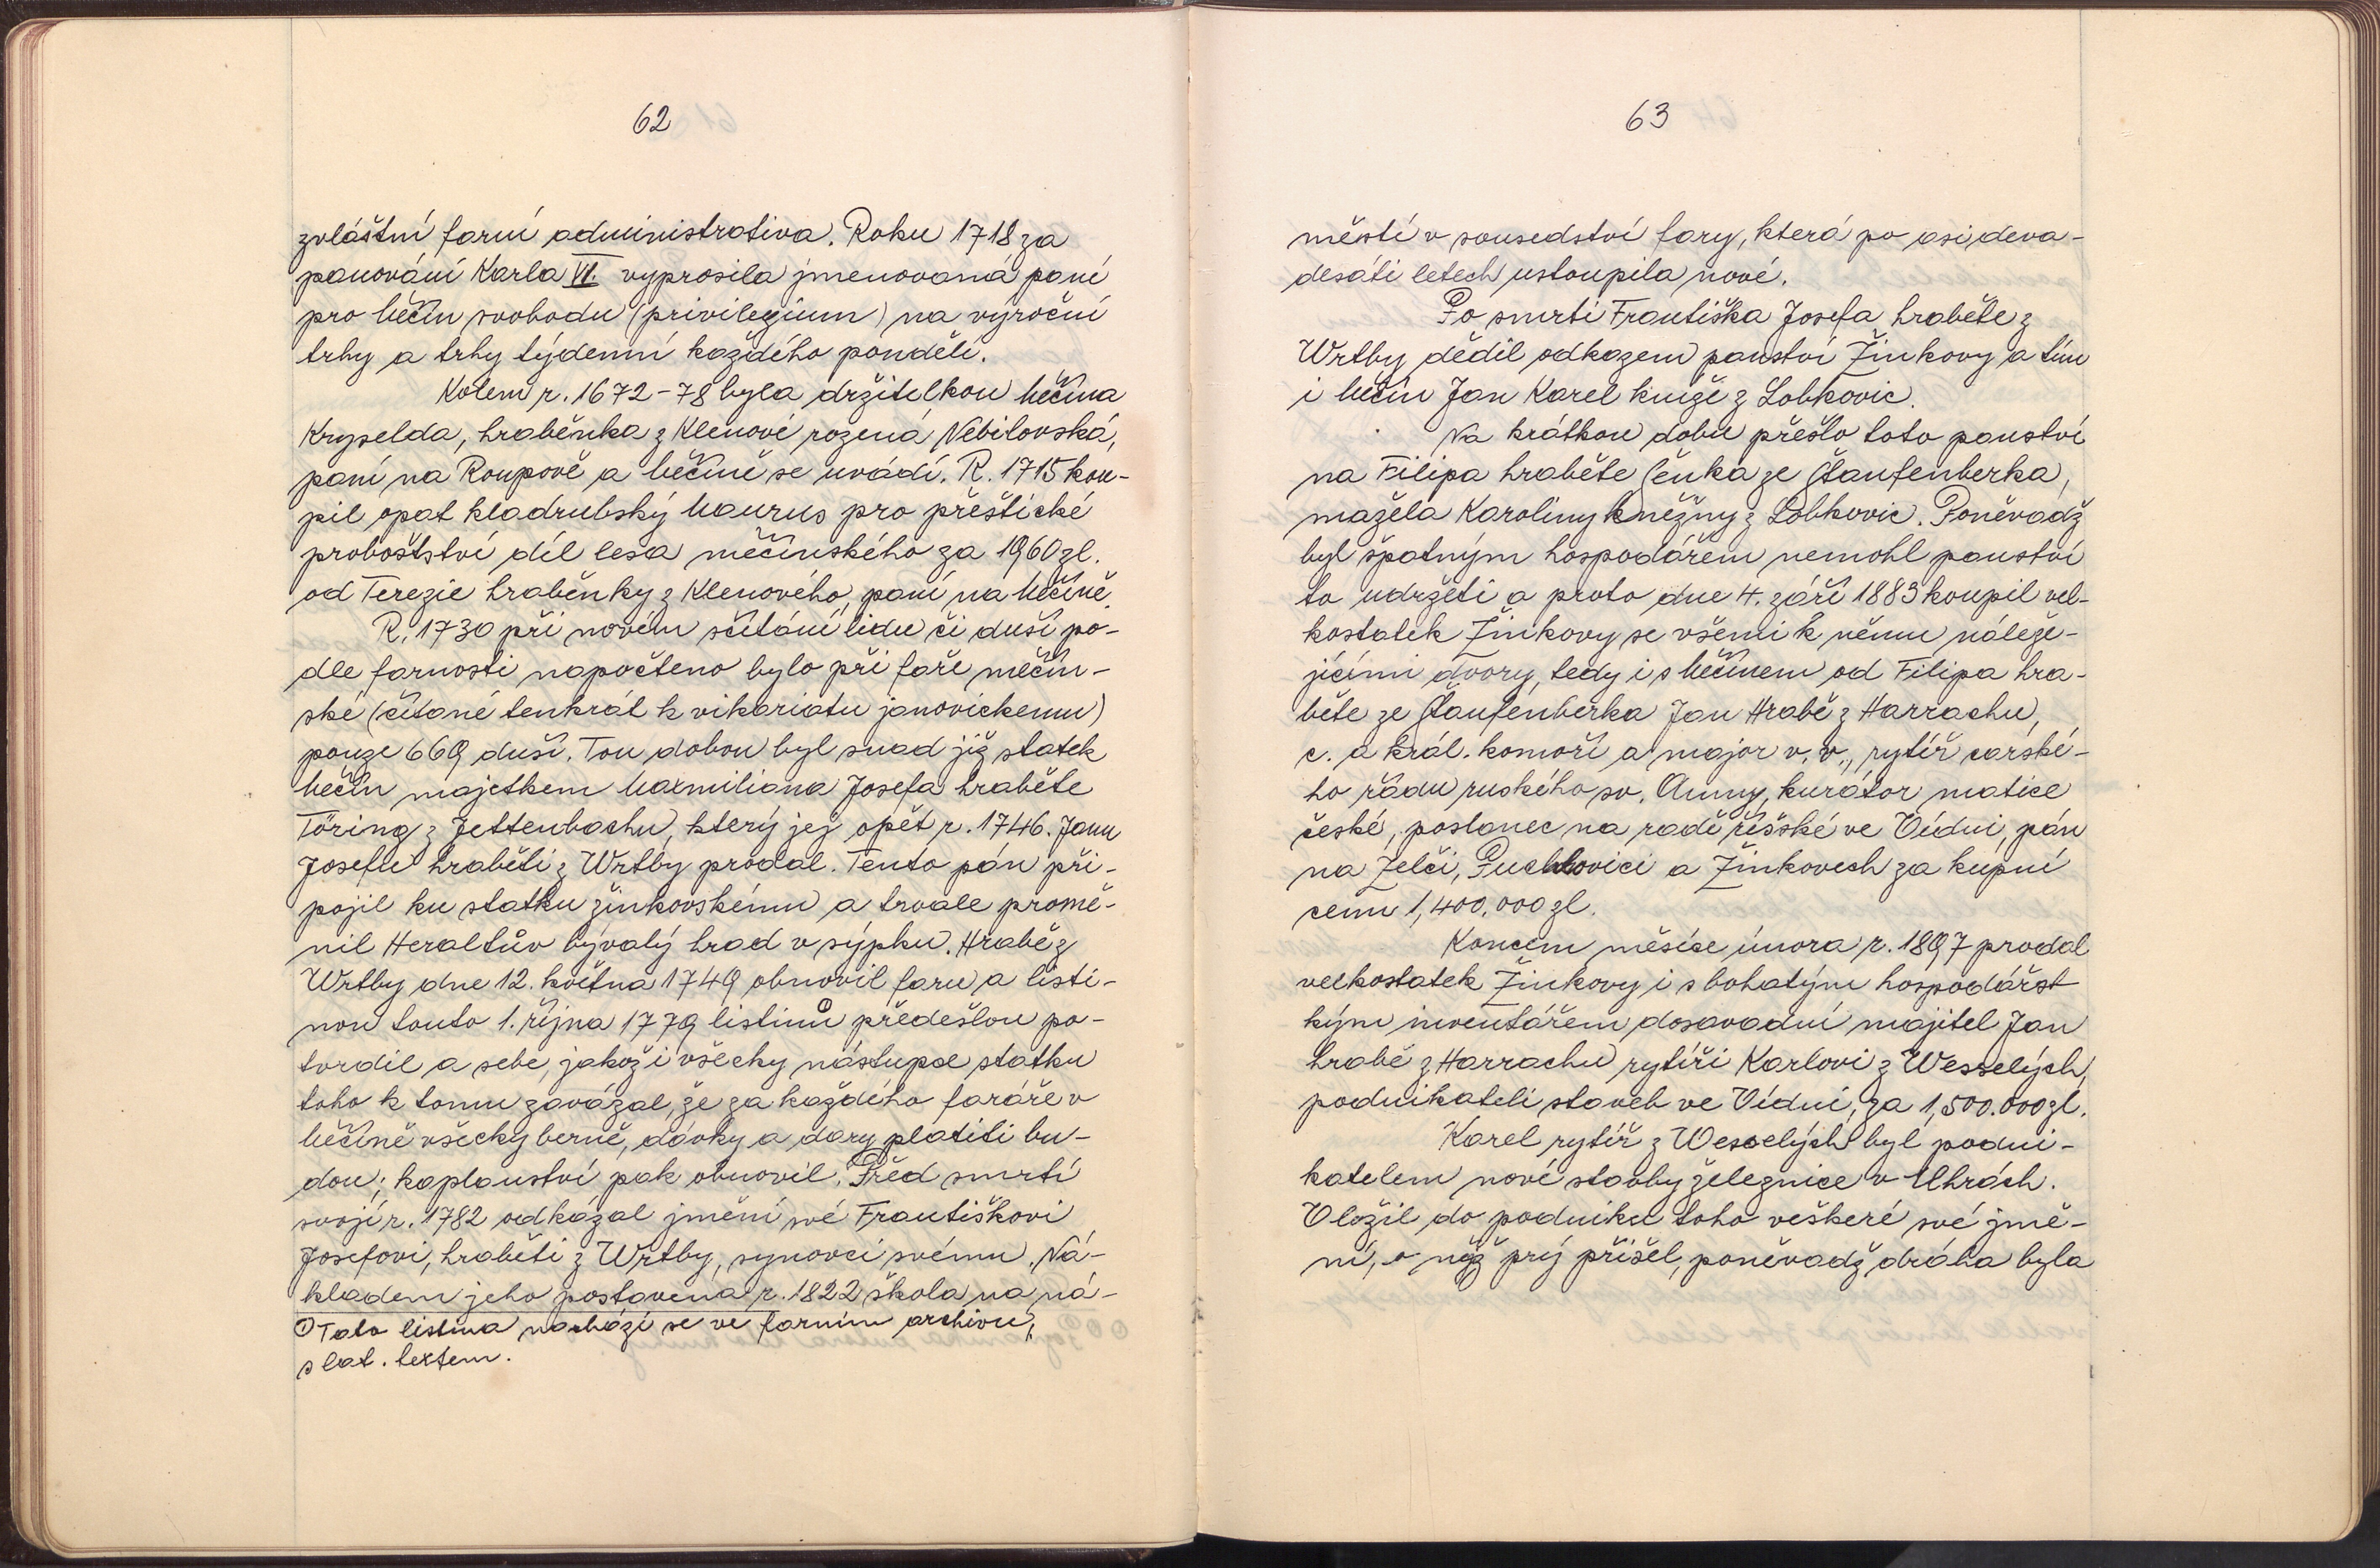 62
zvláštní farní administrativa. Roku 1718 za
panování Karla VI. vyprosila jmenovaná paní
pro Měčín svobodu (privilegium) na výroční
trhy a trhy týdenní každého pondělí.
Kolem r. 1672-78 byla držitelkou Měčína
Kryselda, hraběnka z Klenové rozená Nebilovská,
paní na Roupově a Měčíně se uvádí. R. 1715 kou-
pil opat kladrubský Maurus pro přeštické
proboštství díl lesa měčínského za 1960 zl.
od Terezie hraběnky z Klenového, paní na Měčíně.
R. 1730 při novém sčítání lidu či duší po-
dle farnosti napočteno bylo při faře měčín-
ské (čítané tenkrát k vikariatu janovickemu)
pouze 669 duší. Tou dobou byl snad již statek
Měčín majetkem Maxmiliana Josefa hraběte
Töring z Jettenbachu, který jej opět r. 1746. Janu
Josefu hraběti z Wrtby prodal. Tento pán při-
pojil ku statku žinkovskému a trvale promě-
nil Heraltův bývalý hrad v sýpku. Hrabě z
Wrtby dne 12. května 1749 obnovil faru a listi-
nou touto 1. října 1779 listinu ① předešlou po-
tvrdil a sebe, jakož i všecky nástupce statku
toho k tomu zavázal, že za každého faráře v
Měčíně všecky berně, dávky a dary platiti bu-
dou; kaplanství pak obnovil. Před smrtí
svojí r. 1782 odkázal jmění své Františkovi
Josefovi, hraběti z Wrtby, synovci svému. Ná-
kladem jeho postavena r. 1822 škola na ná-
① Tato listina nachází se ve farním archivu,
s lat. textem.
63
městí v sousedství fary, která po asi deva-
desáti letech ustoupila nové.
Po smrti Františka Josefa hraběte z
Wrtby dědil odkazem panství Žinkovy a tím
i Měčín Jan Karel kníže z Lobkovic.
Na krátkou dobu přešlo toto panství
na Filipa hraběte Čenka ze Štaufenberka,
mažela Karoliny kněžny z Lobkovic. Poněvadž
byl špatným hospodářem nemohl panství
to udržeti a proto dne 4. září 1883 koupil vel-
kostatek Žinkovy se všemi k němu náleže-
jícími dvory, tedy i s Měčínem od Filipa hra-
běte ze Štaufenberka Jan Hrabě z Harrachu,
c. a král. komoří a major v. v., rytíř carské-
ho řádu ruského sv. Anny, kurátor matice
české, poslanec na radě říšské ve Vídni, pán
na Želči, Puchlovici a Žinkovech za kupní
cenu 1,400.000 zl.
Koncem měsíce února r. 1897 prodal
velkostatek Žinkovy i s bohatým hospodářst
kým inventářem dosavadní majitel Jan
hrabě z Harrachu rytíři Karlovi z Wesselých,
podnikateli staveb ve Vídni, za 1,500.000 zl.
Karel rytíř z Wesselých byl podni-
katelem nové stavby železnice v Uhrách.
Vložil do podniku toho veškeré své jmě-
ní, o něž prý přišel, poněvadž dráha byla